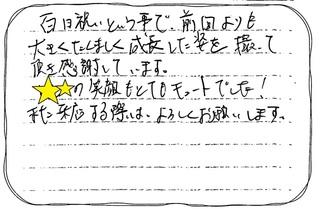 百日祝いという事で、前回よりも
大きくたくましく成長した姿を撮って
頂き感謝しています。
の笑顔もとてもキュートでした!
また来店する際は、よろしくお願いします。